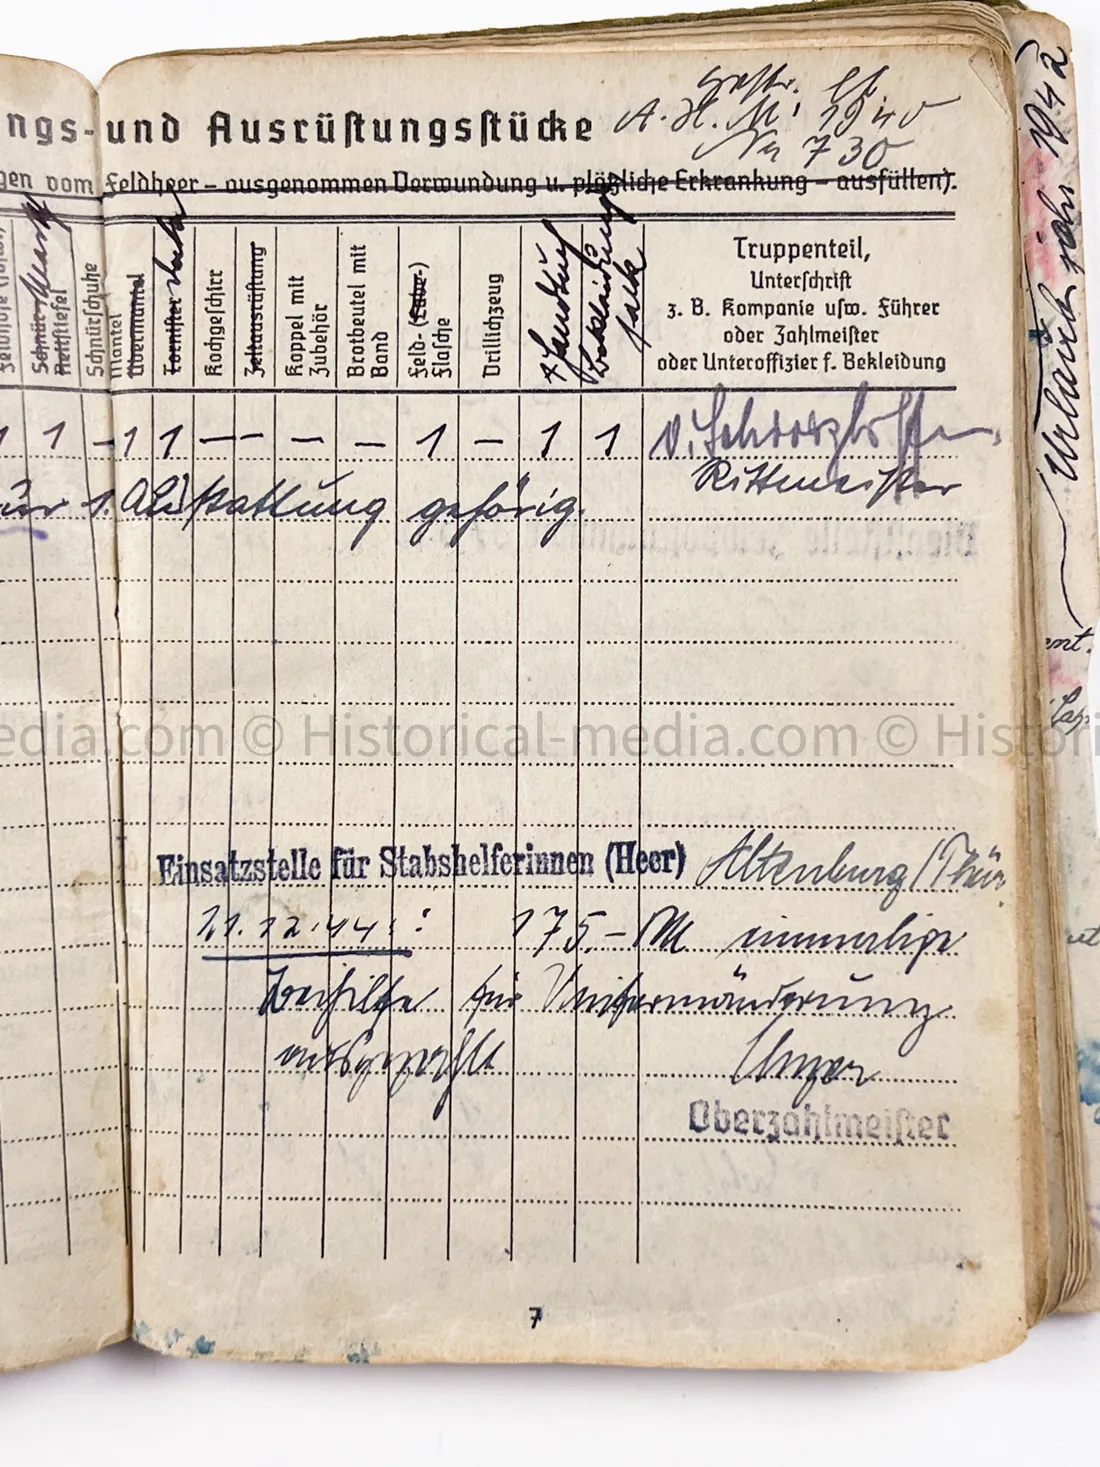 ngs- und Ausrüstungsstücke
Gestr. lt.
A. H. M. 1940
Nr 730
gen vom Feldheer – ausgenommen Verwundung u. plötzliche Erkrankung – ausfüllen).
Schnür-
Reitstiefel
Schnürschuhe
Mantel
Übermantel
Tornister
Kochgeschirr
Zeltausrüstung
Koppel mit
Zubehör
Brotbeutel mit
Band
Feld-(Labe-)
Flasche
Drillichzeug
Handtuch
Bekleidung
sack
Truppenteil,
Unterschrift
z. B. Kompanie usw. Führer
oder Zahlmeister
oder Unteroffizier f. Bekleidung
1 1 – 1 1 – – – – 1 – 1 1
Rittmeister
zur 1. Ausstattung gehörig.
Einsatzstelle für Stabshelferinnen (Heer) Altenburg/Thür.
21.12.44.: 175.– RM einmalige
Beihilfe für Uniformänderung
ausgezahlt
Oberzahlmeister
7
Urlaub 1942
edia.com © Historical-media.com © Histori